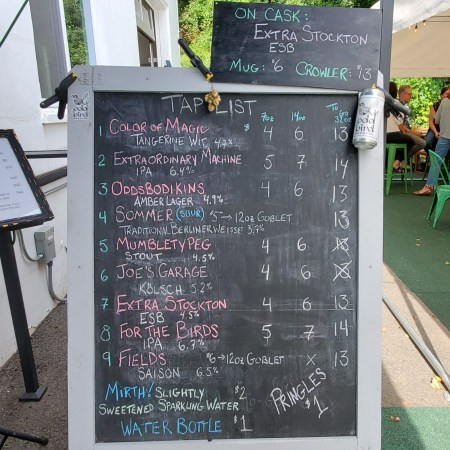 ON CASK:
EXTRA STOCKTON
ESB
MUG: $6 CROWLER: $13
TAP LIST
7oz 14oz TO GO 32oz
1 COLOR OF MAGIC $ 4 6 13
TANGERINE WIT 4.7%
2 EXTRAORDINARY MACHINE 5 7 14
IPA 6.4%
3 ODDSBODIKINS 4 6 13
AMBER LAGER 4.9%
4 SOMMER (SOUR) $5→12oz GOBLET 13
TRADITIONAL BERLINER WEISSE 3.7%
5 MUMBLETY PEG 4 6 X
STOUT 4.5%
6 JOE'S GARAGE 4 6 X
KÖLSCH 5.2%
7 EXTRA STOCKTON 4 6 13
ESB 4.5%
8 FOR THE BIRDS 5 7 14
IPA 6.7%
9 FIELDS $6→12oz GOBLET X 13
SAISON 6.5%
MIRTH! SLIGHTLY $2
SWEETENED SPARKLING WATER
WATER BOTTLE $1
PRINGLES
$1
odd
bird